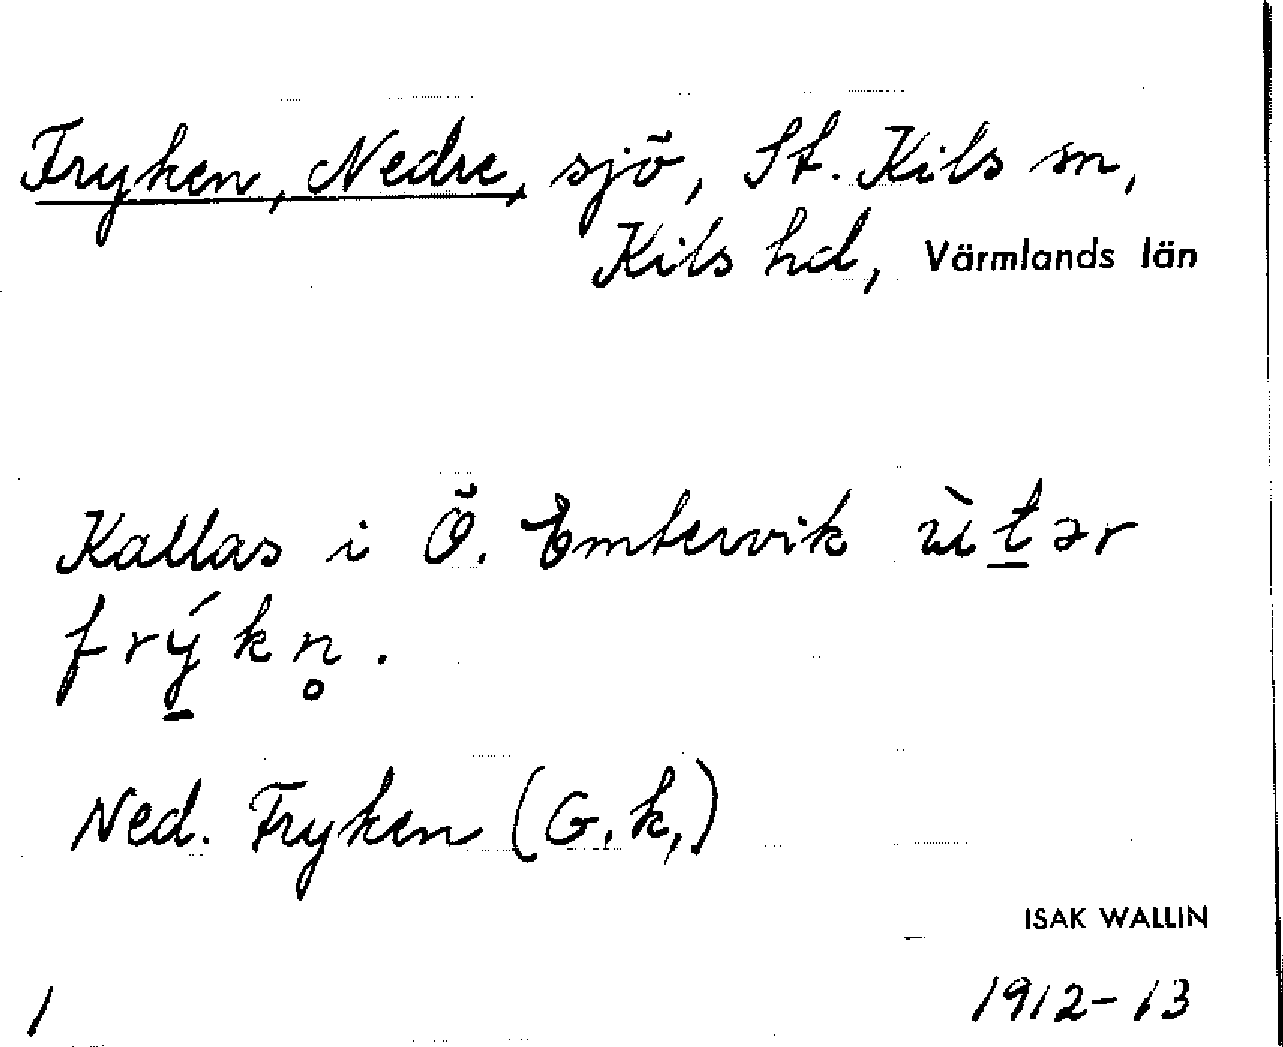 Fryken, Nedre, sjö, St. Kils sn,
Kils hd, Värmlands län
Kallas i Ö. Emtervik ùt̲ər
frý̲kn̥.
Ned. Fryken (G.k,)
ISAK WALLIN
1 1912-13